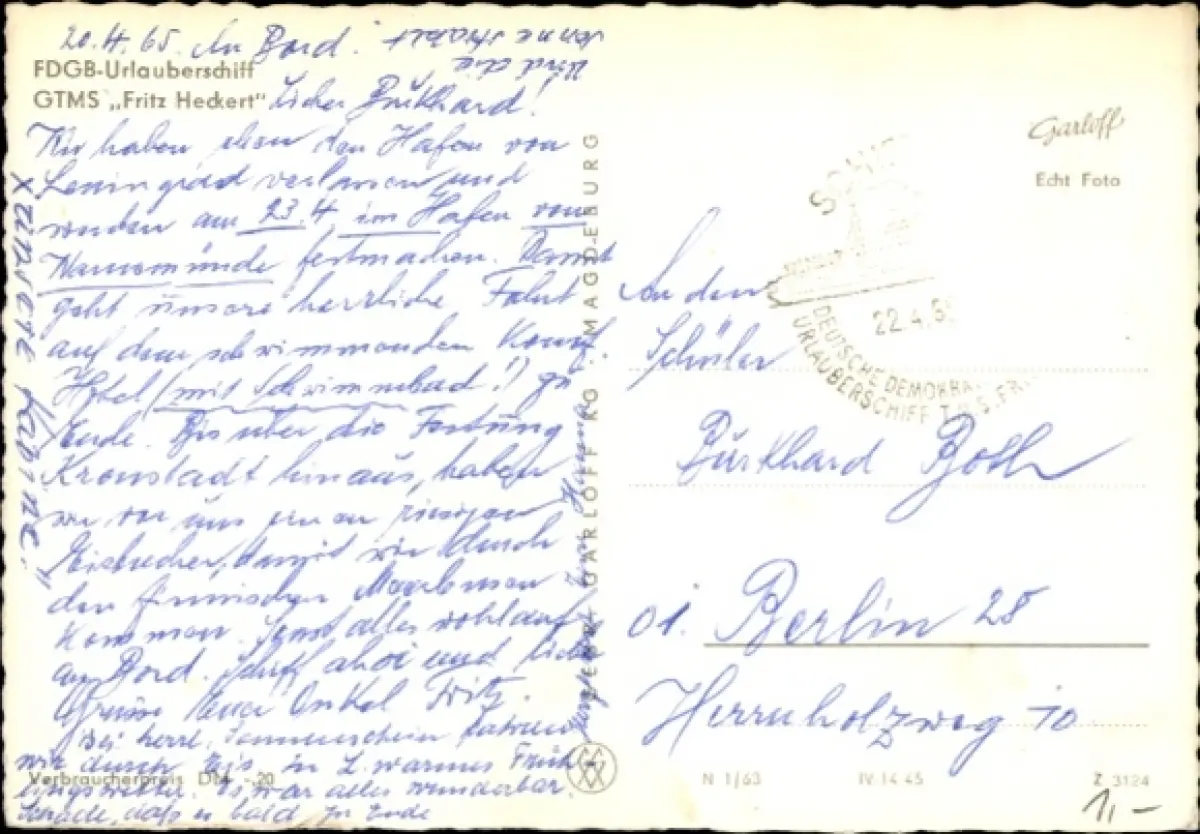 20.4.65. An Bord.
FDGB-Urlauberschiff
GTMS „Fritz Heckert"
Lieber Burkhard!
Wir haben eben den Hafen von
Leningrad verlassen und
werden am 23.4. im Hafen von
Warnemünde festmachen. Damit
geht unsere herrliche Fahrt
auf dem schwimmenden Komf.
Hotel (mit Schwimmbad!) zu
Ende. Bis über die Festung
Kronstadt hinaus, haben
wir vor uns einen riesigen
Eisbrecher, damit wir durch
den finnischen Meerbusen
kommen. Sonst alles wohlauf
an Bord. Schiff ahoi und liebe
Grüsse Euer Onkel Fritz.
Bei herrl. Sonnenschein fahren
wir durch Eis, in L. warmes Früh-
lingswetter. Es war alles wunderbar.
Schade, daß es bald zu Ende
und die
Sonne strahlt
x unsere Kabine."
Verbraucherpreis DM -.20
VERLAG GARLOFF KG. MAGDEBURG
Garloff
Echt Foto
22.4.6
DEUTSCHE DEMOKRA
URLAUBERSCHIFF T.M.S. FRI
An den
Schüler
Burkhard Both
01. Berlin 28
Herrnholzweg 10
N 1/63
IV-14-45
Z 3124
1,-